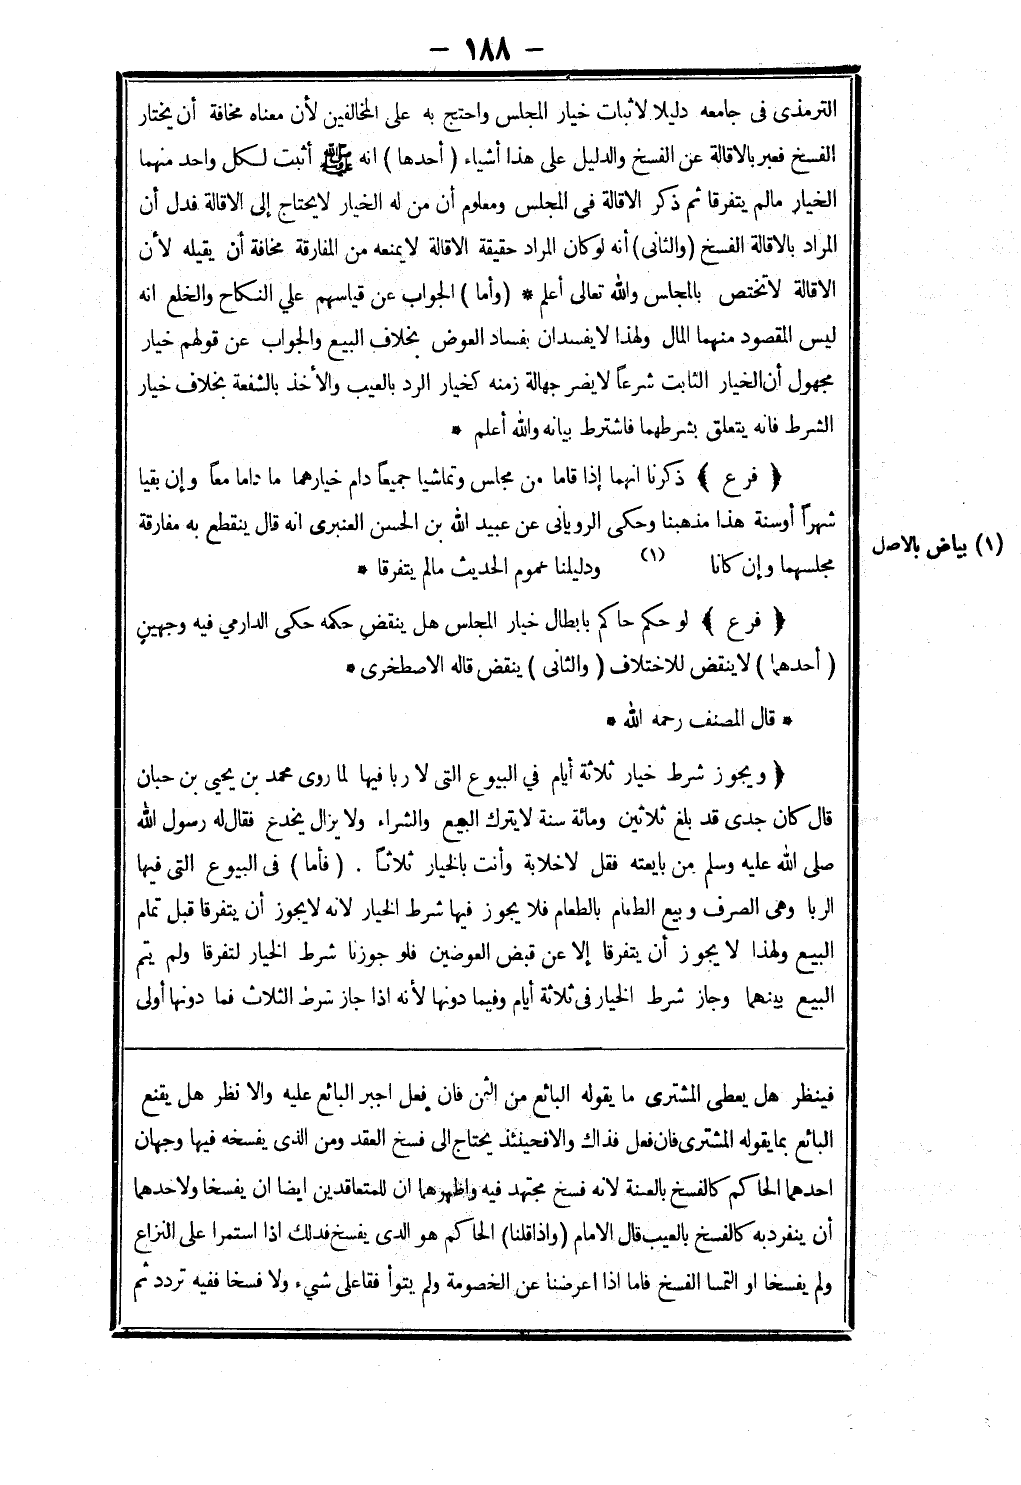 - ١٨٨ -
الترمذى فى جامعه دليلا لاثبات خيار المجلس واحتج به على المخالفين لأن معناه مخافة أن يختار
الفسخ فعبر بالاقالة عن الفسخ والدليل على هذا أشياء ( أحدها ) انه ﷺ أثبت لكل واحد منهما
الخيار مالم يتفرقا ثم ذكر الاقالة فى المجلس ومعلوم أن من له الخيار لايحتاج إلى الاقالة فدل أن
المراد بالاقالة الفسخ (والثانى) أنه لوكان المراد حقيقة الاقالة لايمنعه من المفارقة مخافة أن يقيله لأن
الاقالة لاتختص بالمجلس والله تعالى أعلم * (وأما ) الجواب عن قياسهم علي النكاح والخلع انه
ليس المقصود منهما المال ولهذا لايفسدان بفساد العوض بخلاف البيع والجواب عن قولهم خيار
مجهول أن الخيار الثابت شرعاً لايضر جهالة زمنه كخيار الرد بالعيب والأخذ بالشفعة بخلاف خيار
الشرط فانه يتعلق بشرطهما فاشترط بيانه والله أعلم *
﴿ فرع ﴾ ذكرنا انهما إذا قاما من مجلس وتماشيا جميعاً دام خيارهما ما داما معاً وإن بقيا
شهراً أوسنة هذا مذهبنا وحكى الرويانى عن عبيد الله بن الحسن العنبرى انه قال ينقطع به مفارقة
مجلسهما وإن كانا (١) ودليلنا عموم الحديث مالم يتفرقا *
(١) بياض بالاصل
﴿ فرع ﴾ لو حكم حاكم بابطال خيار المجلس هل ينقض حكمه حكى الدارمي فيه وجهين
( أحدهما ) لاينقض للاختلاف ( والثانى ) ينقض قاله الاصطخرى *
* قال المصنف رحمه الله *
﴿ ويجوز شرط خيار ثلاثة أيام في البيوع التى لا ربا فيها لما روى محمد بن يحيي بن حبان
قال كان جدى قد بلغ ثلاثين ومائة سنة لايترك البيع والشراء ولا يزال يخدع فقال له رسول الله
صلى الله عليه وسلم من بايعته فقل لاخلابة وأنت بالخيار ثلاثاً . ( فأما ) فى البيوع التى فيها
الربا وهى الصرف وبيع الطعام بالطعام فلا يجوز فيها شرط الخيار لانه لايجوز أن يتفرقا قبل تمام
البيع ولهذا لا يجوز أن يتفرقا إلا عن قبض العوضين فلو جوزنا شرط الخيار لتفرقا ولم يتم
البيع بينهما وجاز شرط الخيار فى ثلاثة أيام وفيما دونها لأنه اذا جاز شرط الثلاث فما دونها أولى
فينظر هل يعطى المشترى ما يقوله البائع من الثمن فان فعل اجبر البائع عليه والا نظر هل يقنع
البائع بمايقوله المشترى فان فعل فذاك والافحينئذ يحتاج الى فسخ العقد ومن الذى يفسخه فيها وجهان
احدهما الحاكم كالفسخ بالعنة لانه فسخ مجتهد فيه واظهرهما ان للمتعاقدين ايضا ان يفسخا ولاحدهما
أن ينفردبه كالفسخ بالعيب قال الامام (واذاقلنا) الحاكم هو الذى يفسخ فذلك اذا استمرا على النزاع
ولم يفسخا او التمسا الفسخ فاما اذا اعرضنا عن الخصومة ولم يتوأ فقاعلى شيء ولا فسخا ففيه تردد ثم